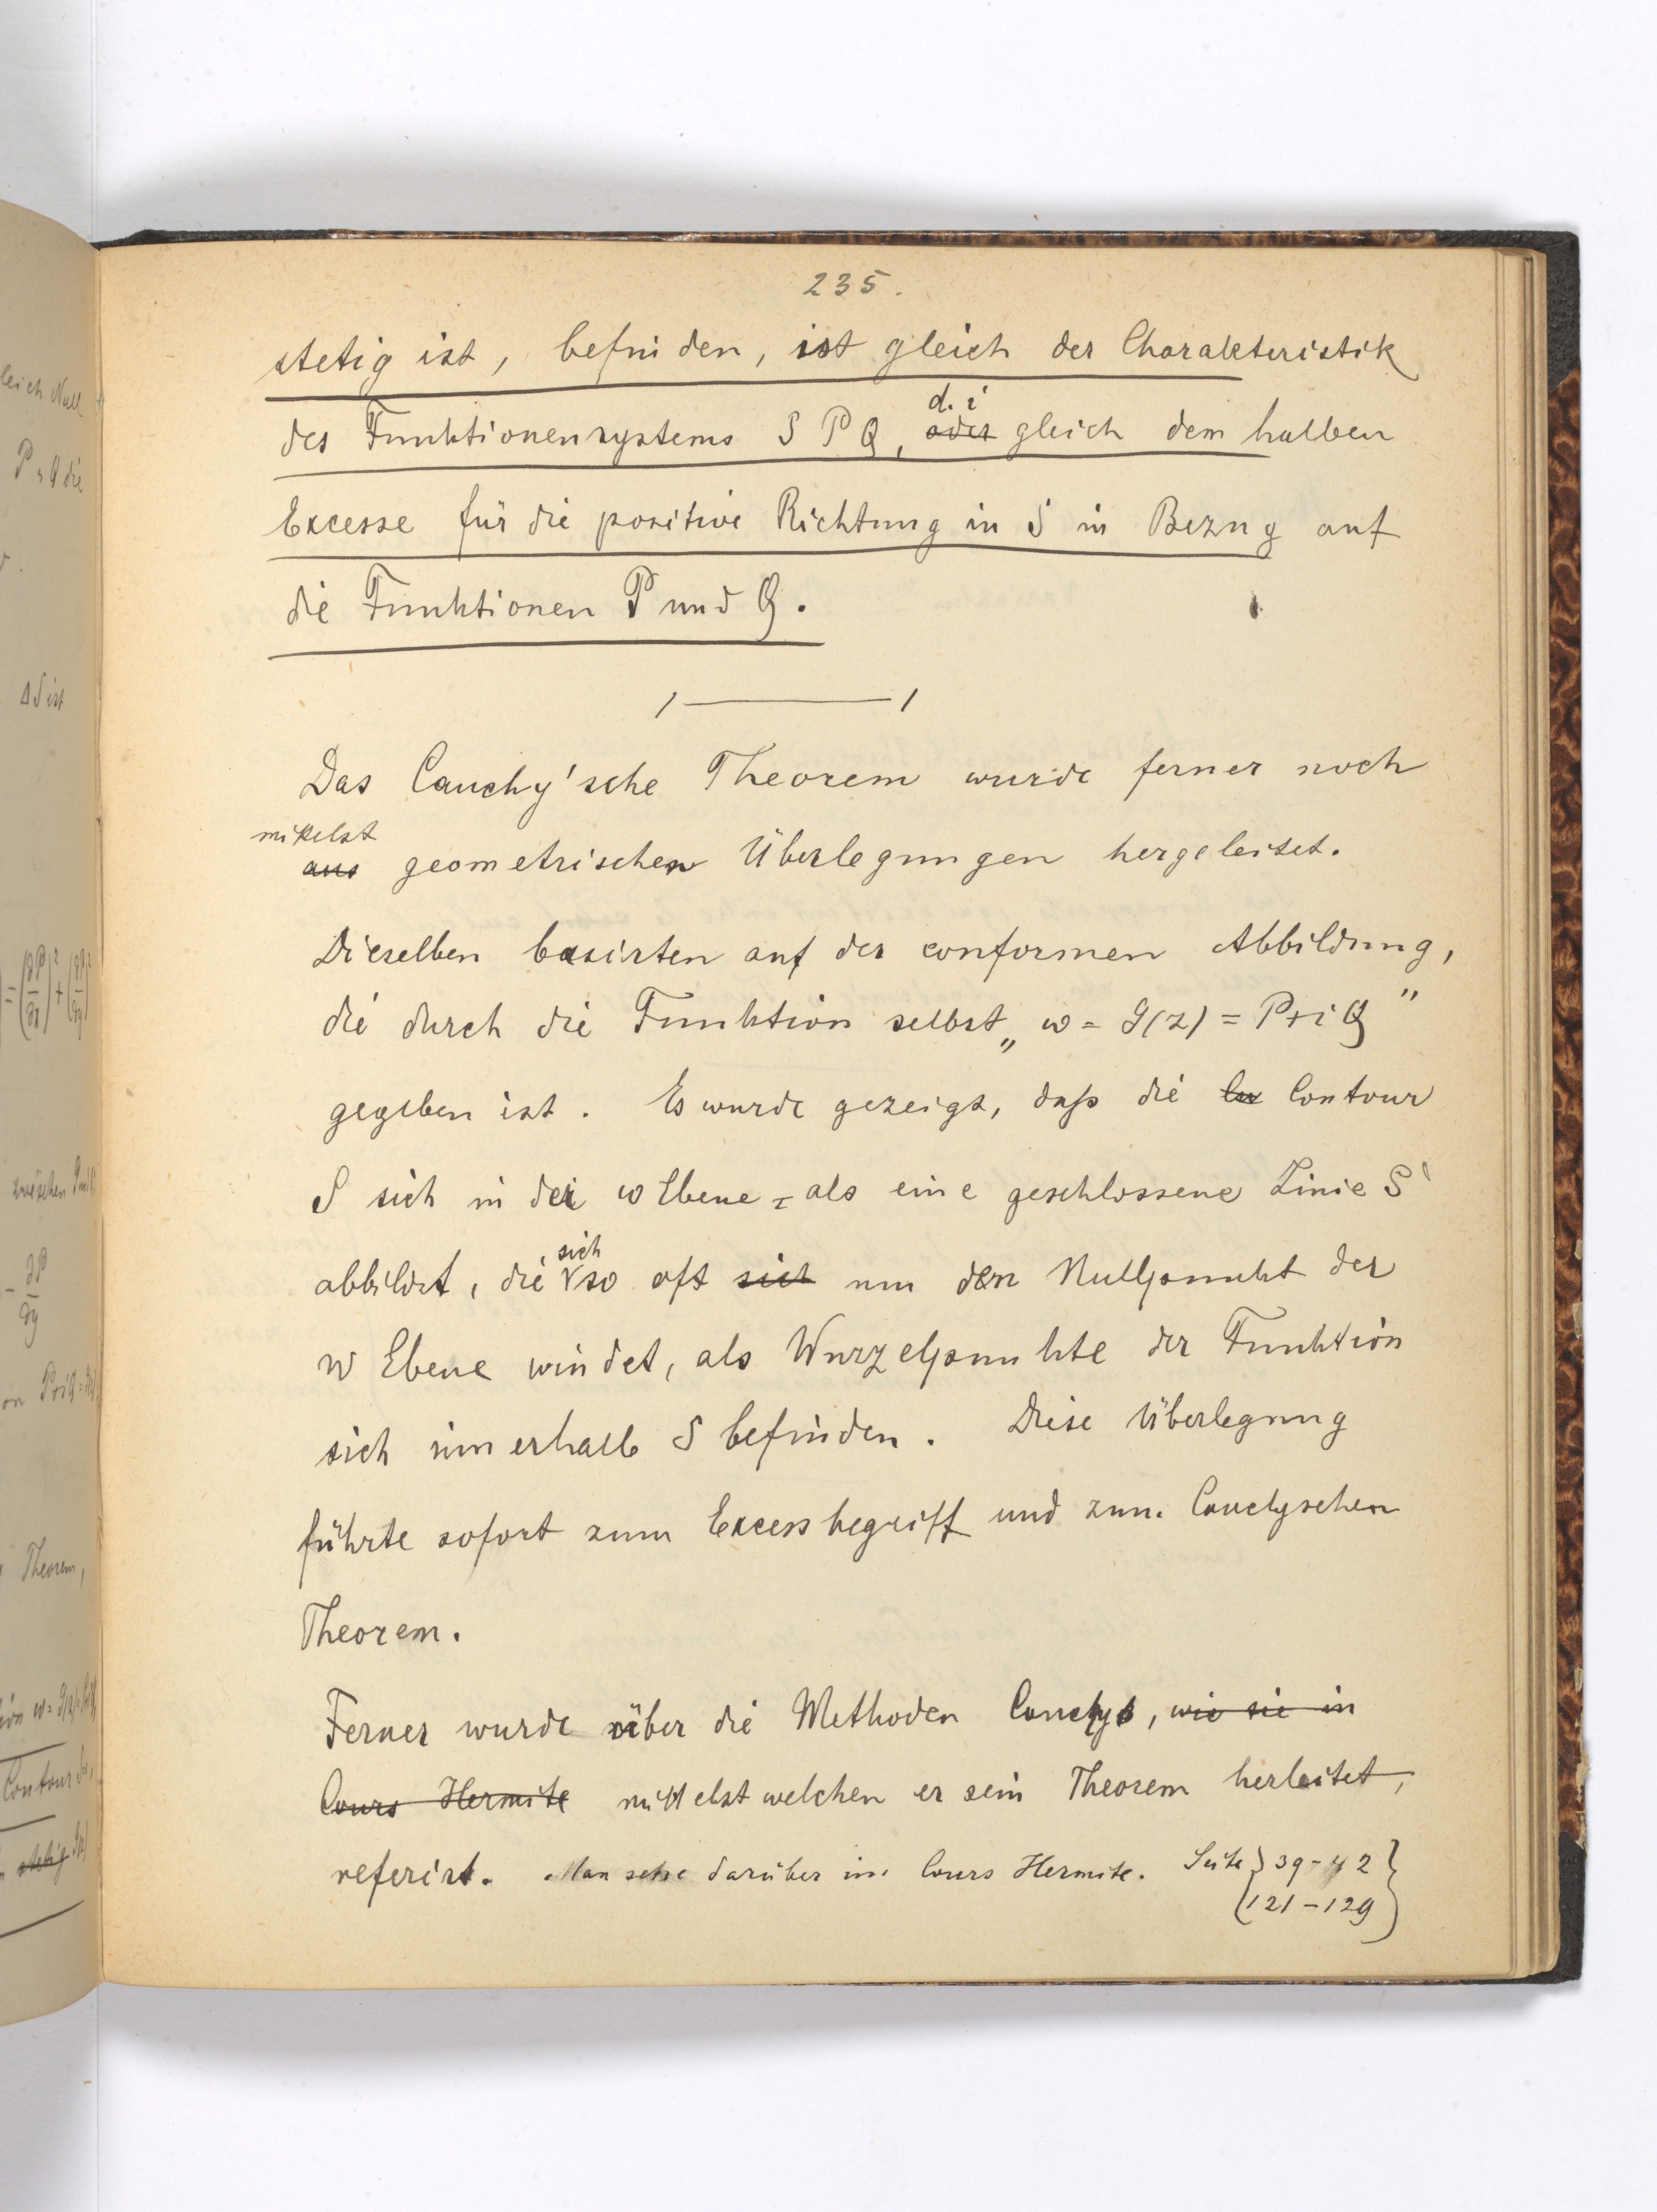 235.
stetig ist, befinden, ist gleich der Charakteristik
d. i
des Funktionensystems S P Q, oder gleich dem halben
Excesse für die positive Richtung in S in Bezug auf
die Funktionen P und Q.
Das Cauchy'sche Theorem wurde ferner noch
mittelst
aus geometrischen Überlegungen hergeleitet.
Dieselben basirten auf der conformen Abbildung,
die durch die Funktion selbst „ w = g(z) = P+iQ "
gegeben ist. Es wurde gezeigt, daß die Contour
S sich in der w Ebene als eine geschlossene Linie S'
sich
abbildet, die so oft sich um den Nullpunkt der
W Ebene windet, als Wurzelpunkte der Funktion
sich innerhalb S befinden. Diese Überlegung
führte sofort zum Excessbegriff und zum Cauchyschen
Theorem.
Ferner wurde über die Methoden Cauchys, wie sie in
Cours Hermite mittelst welchen er sein Theorem herleitet,
referirt. Man sehe darüber im Cours Hermite. Seite } 39-42 }
(121-129)
leich Null
P & Q die
ΔS ist
zwischen
- ∂P/∂y
on P+iQ
Theorem,
Contour
stetig